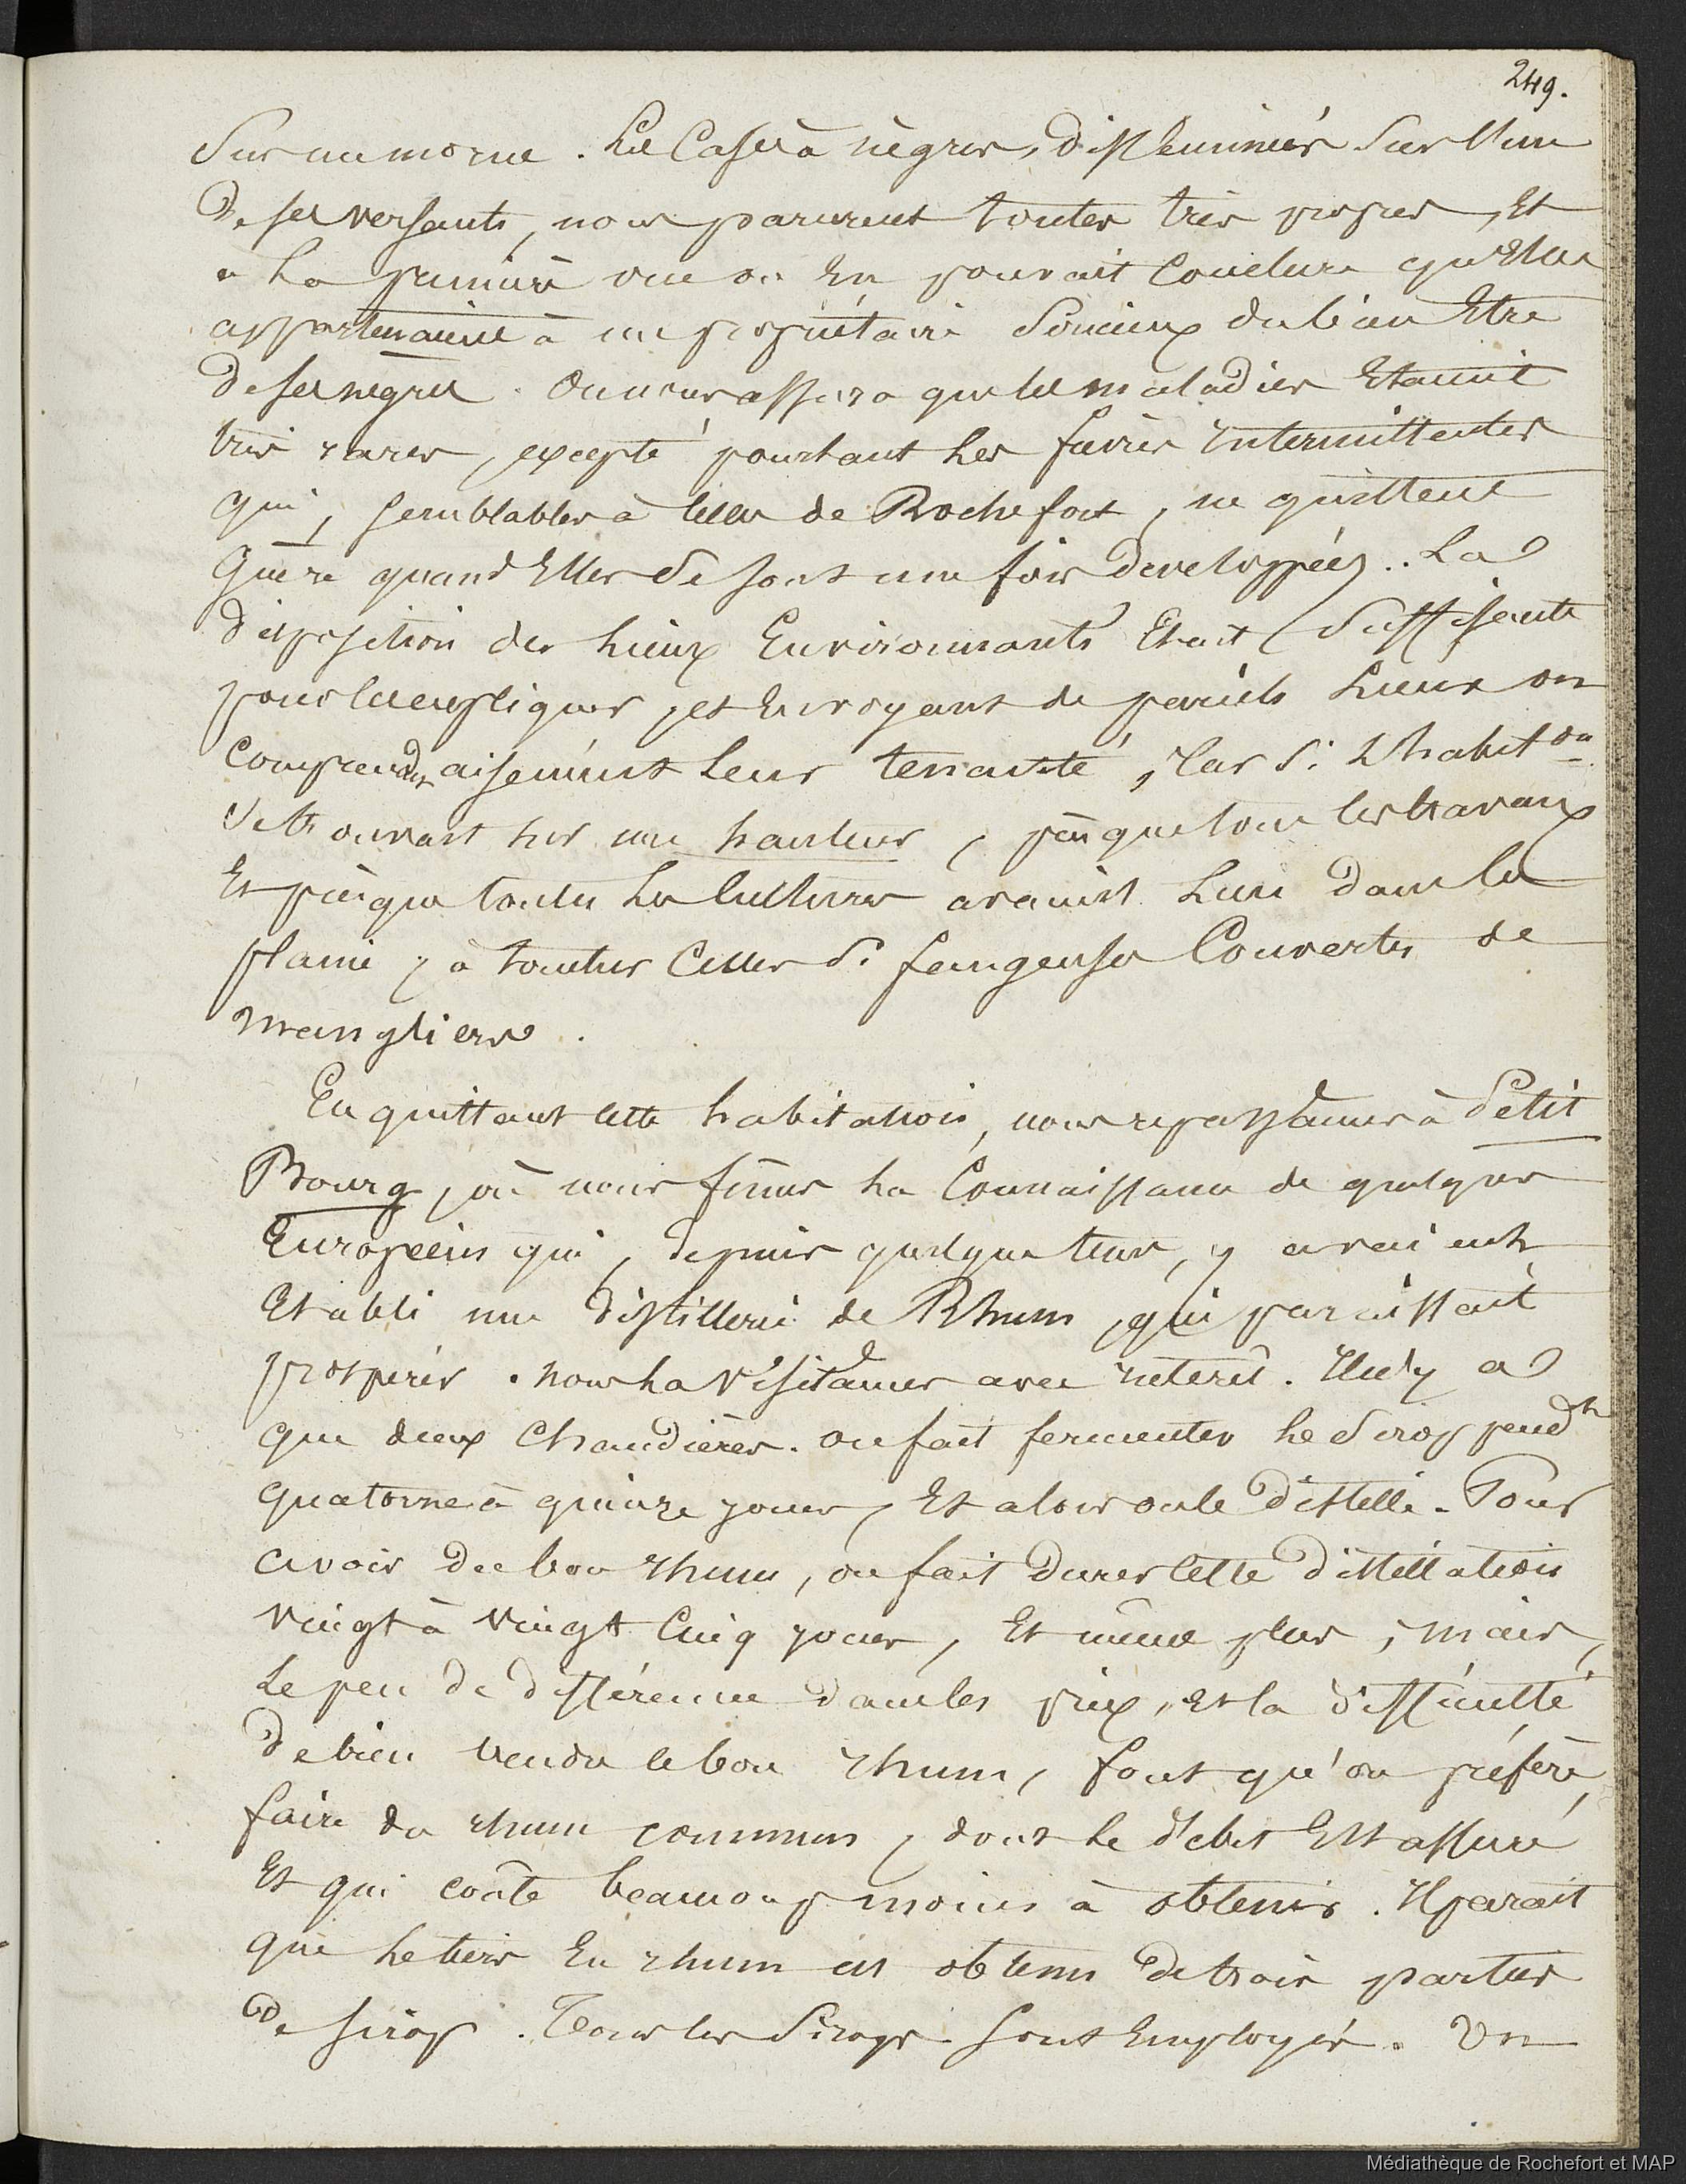 249.
Sur un morne. Les Cases à nègres, disséminées Sur l'un
De ses versants, nous parurent toutes très propres, Et
a la première vue on En pouvait Conclure qu'Elles
appartenaient à un propriétaire Soucieux du bien Etre
De ses negres. On nous assura que les maladies Etaient
très rares, excepté pourtant les fièvres Intermittentes
qui, semblables à celles de Rochefort, ne quittent
Guère quand Elles Se sont une fois developpées.. La
disposition des lieux Environnants Etait Suffisante
pour les expliquer, et En voyant de pareils lieux on
Comprendra aisément leur tenacité, Car Si L'habit.on
Se trouvait sur une hauteur, presque tous les travaux
Et presque toutes les Cultures avaient lieu dans la
plaine, à toutes Celles Si fangeuses Couvertes de
mangliers.
En quittant cette habitation, nous repassâmes à Petit
Bourg, où nous fîmes la Connaissance de quelques
Européens qui, depuis quelque tems, y avaient
Etabli une Distillerie de Rhum, qui paraissait
prospérer. nous la Visitâmes avec interêt. Il n'y a
que deux Chaudières. on fait fermenter le Sirop pend.t
quatorze à quinze jours, Et alors on le Distille. Pour
avoir de bon rhum, on fait Durer Cette Distillation
Vingt à Vingt Cinq jours, Et même plus ; mais,
le peu de différence dans les prix, et la difficulté
De bien vendre le bon rhum, font qu'on préfère,
faire du rhum commun, dont le débit Est assuré
Et qui coûte beaucoup moins à obtenir. Il parait
que le tiers En rhum est obtenu de trois parties
De sirop. Tous les Sirops Sont Employés. Un
Médiathèque de Rochefort et MAP